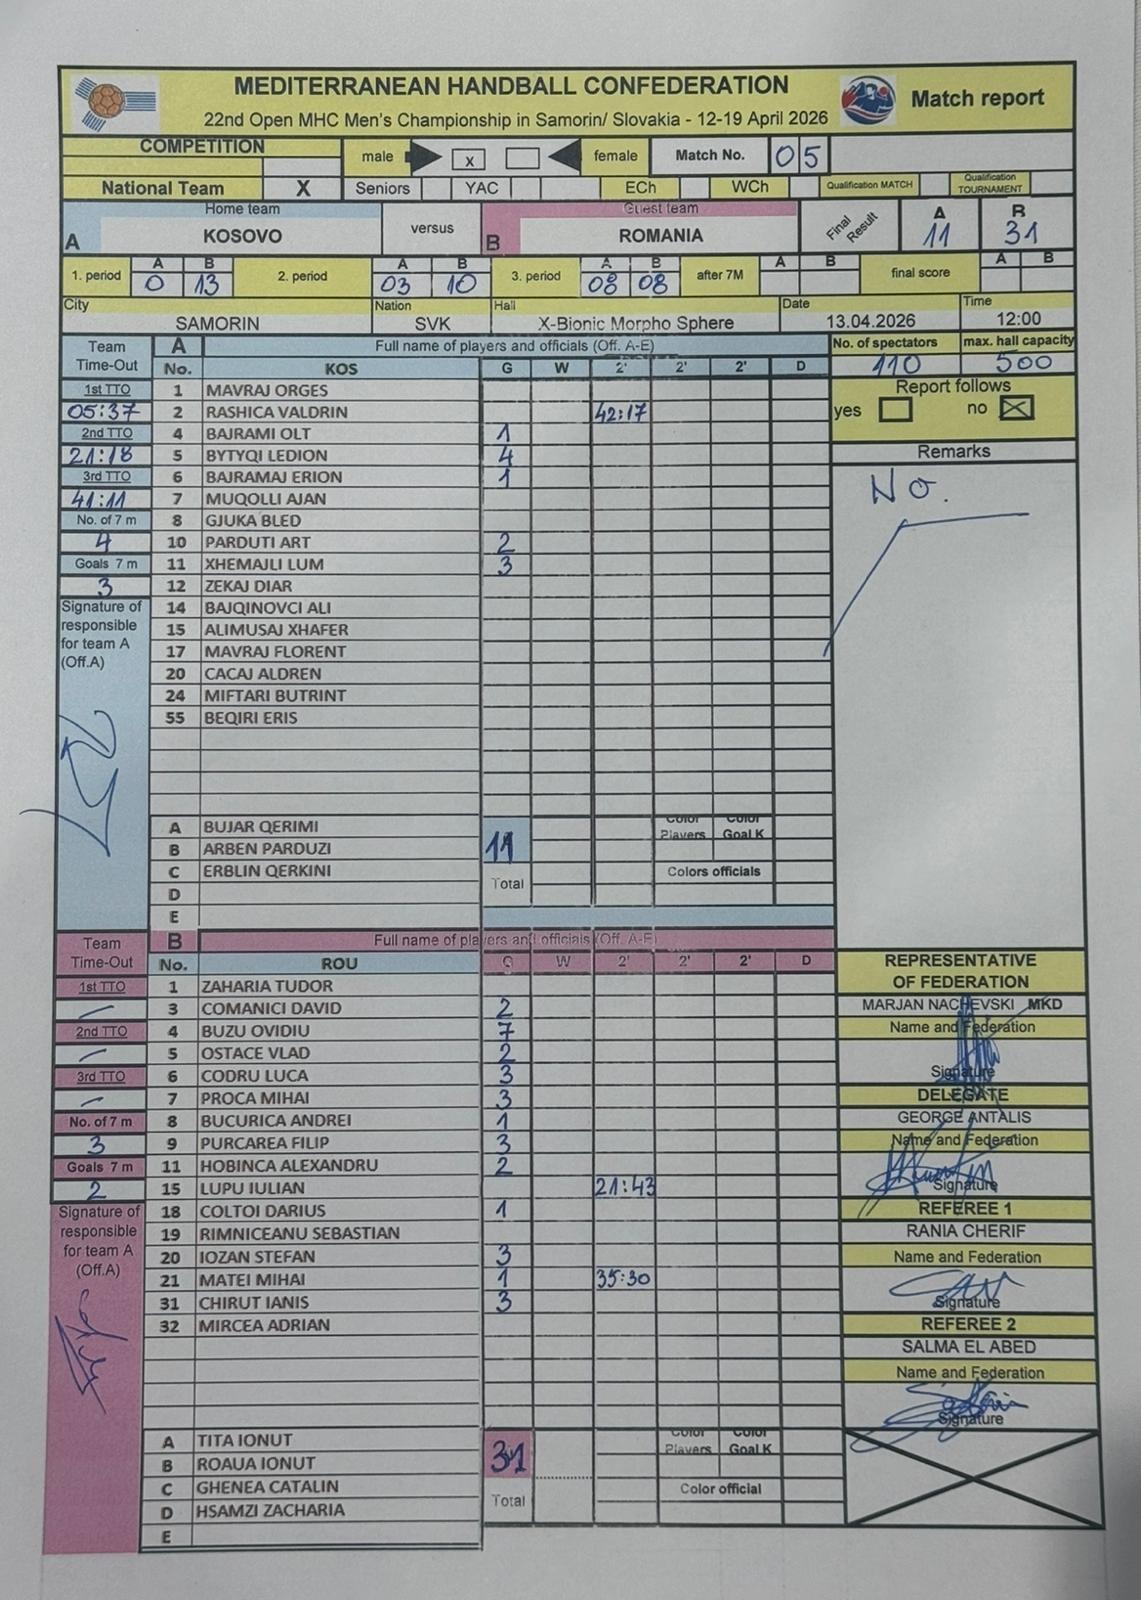 MEDITERRANEAN HANDBALL CONFEDERATION
22nd Open MHC Men's Championship in Samorin/ Slovakia - 12-19 April 2026
Match report
COMPETITION male X female Match No. 05
National Team X Seniors YAC ECh WCh Qualification MATCH Qualification TOURNAMENT
Home team versus Guest team Final Result A B
A KOSOVO B ROMANIA 11 31
A B A B A B A B A B
1. period 0 13 2. period 03 10 3. period 08 08 after 7M final score
City Nation Hall Date Time
SAMORIN SVK X-Bionic Morpho Sphere 13.04.2026 12:00
Team Time-Out A Full name of players and officials (Off. A-E) No. of spectators max. hall capacity
No. KOS G W 2' 2' 2' D 110 500
1st TTO 1 MAVRAJ ORGES Report follows
05:37 2 RASHICA VALDRIN 42:17 yes no X
2nd TTO 4 BAJRAMI OLT 1
21:18 5 BYTYQI LEDION 4 Remarks
3rd TTO 6 BAJRAMAJ ERION 1 No.
41:11 7 MUQOLLI AJAN
No. of 7 m 8 GJUKA BLED
4 10 PARDUTI ART 2
Goals 7 m 11 XHEMAJLI LUM 3
3 12 ZEKAJ DIAR
Signature of responsible for team A (Off.A) 14 BAJQINOVCI ALI
15 ALIMUSAJ XHAFER
17 MAVRAJ FLORENT
20 CACAJ ALDREN
24 MIFTARI BUTRINT
55 BEQIRI ERIS
A BUJAR QERIMI Color Players Color Goal K
B ARBEN PARDUZI 11
C ERBLIN QERKINI Total Colors officials
D
E
Team Time-Out B Full name of players and officials (Off. A-E)
No. ROU G W 2' 2' 2' D REPRESENTATIVE OF FEDERATION
1st TTO 1 ZAHARIA TUDOR
3 COMANICI DAVID 2 MARJAN NACHEVSKI MKD
2nd TTO 4 BUZU OVIDIU 7 Name and Federation
5 OSTACE VLAD 2
3rd TTO 6 CODRU LUCA 3 Signature
7 PROCA MIHAI 3 DELEGATE
No. of 7 m 8 BUCURICA ANDREI 1 GEORGE ANTALIS
3 9 PURCAREA FILIP 3 Name and Federation
Goals 7 m 11 HOBINCA ALEXANDRU 2
2 15 LUPU IULIAN 21:43 Signature
Signature of responsible for team A (Off.A) 18 COLTOI DARIUS 1 REFEREE 1
19 RIMNICEANU SEBASTIAN RANIA CHERIF
20 IOZAN STEFAN 3 Name and Federation
21 MATEI MIHAI 1 35:30
31 CHIRUT IANIS 3 Signature
32 MIRCEA ADRIAN REFEREE 2
SALMA EL ABED
Name and Federation
Signature
A TITA IONUT Color Players Color Goal K
B ROAUA IONUT 31
C GHENEA CATALIN Total Color official
D HSAMZI ZACHARIA
E